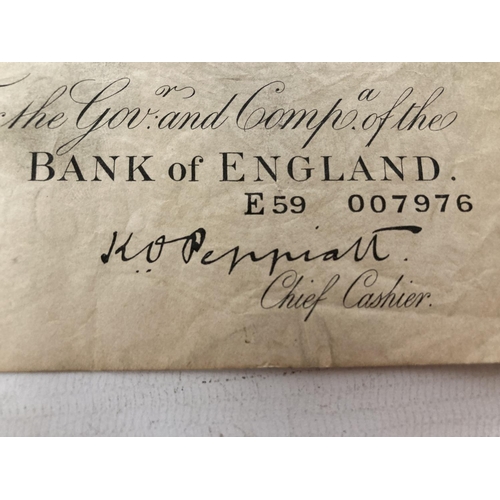 the Gov:r and Comp:a of the
BANK of ENGLAND.
E59 007976
K.O Peppiatt.
Chief Cashier.